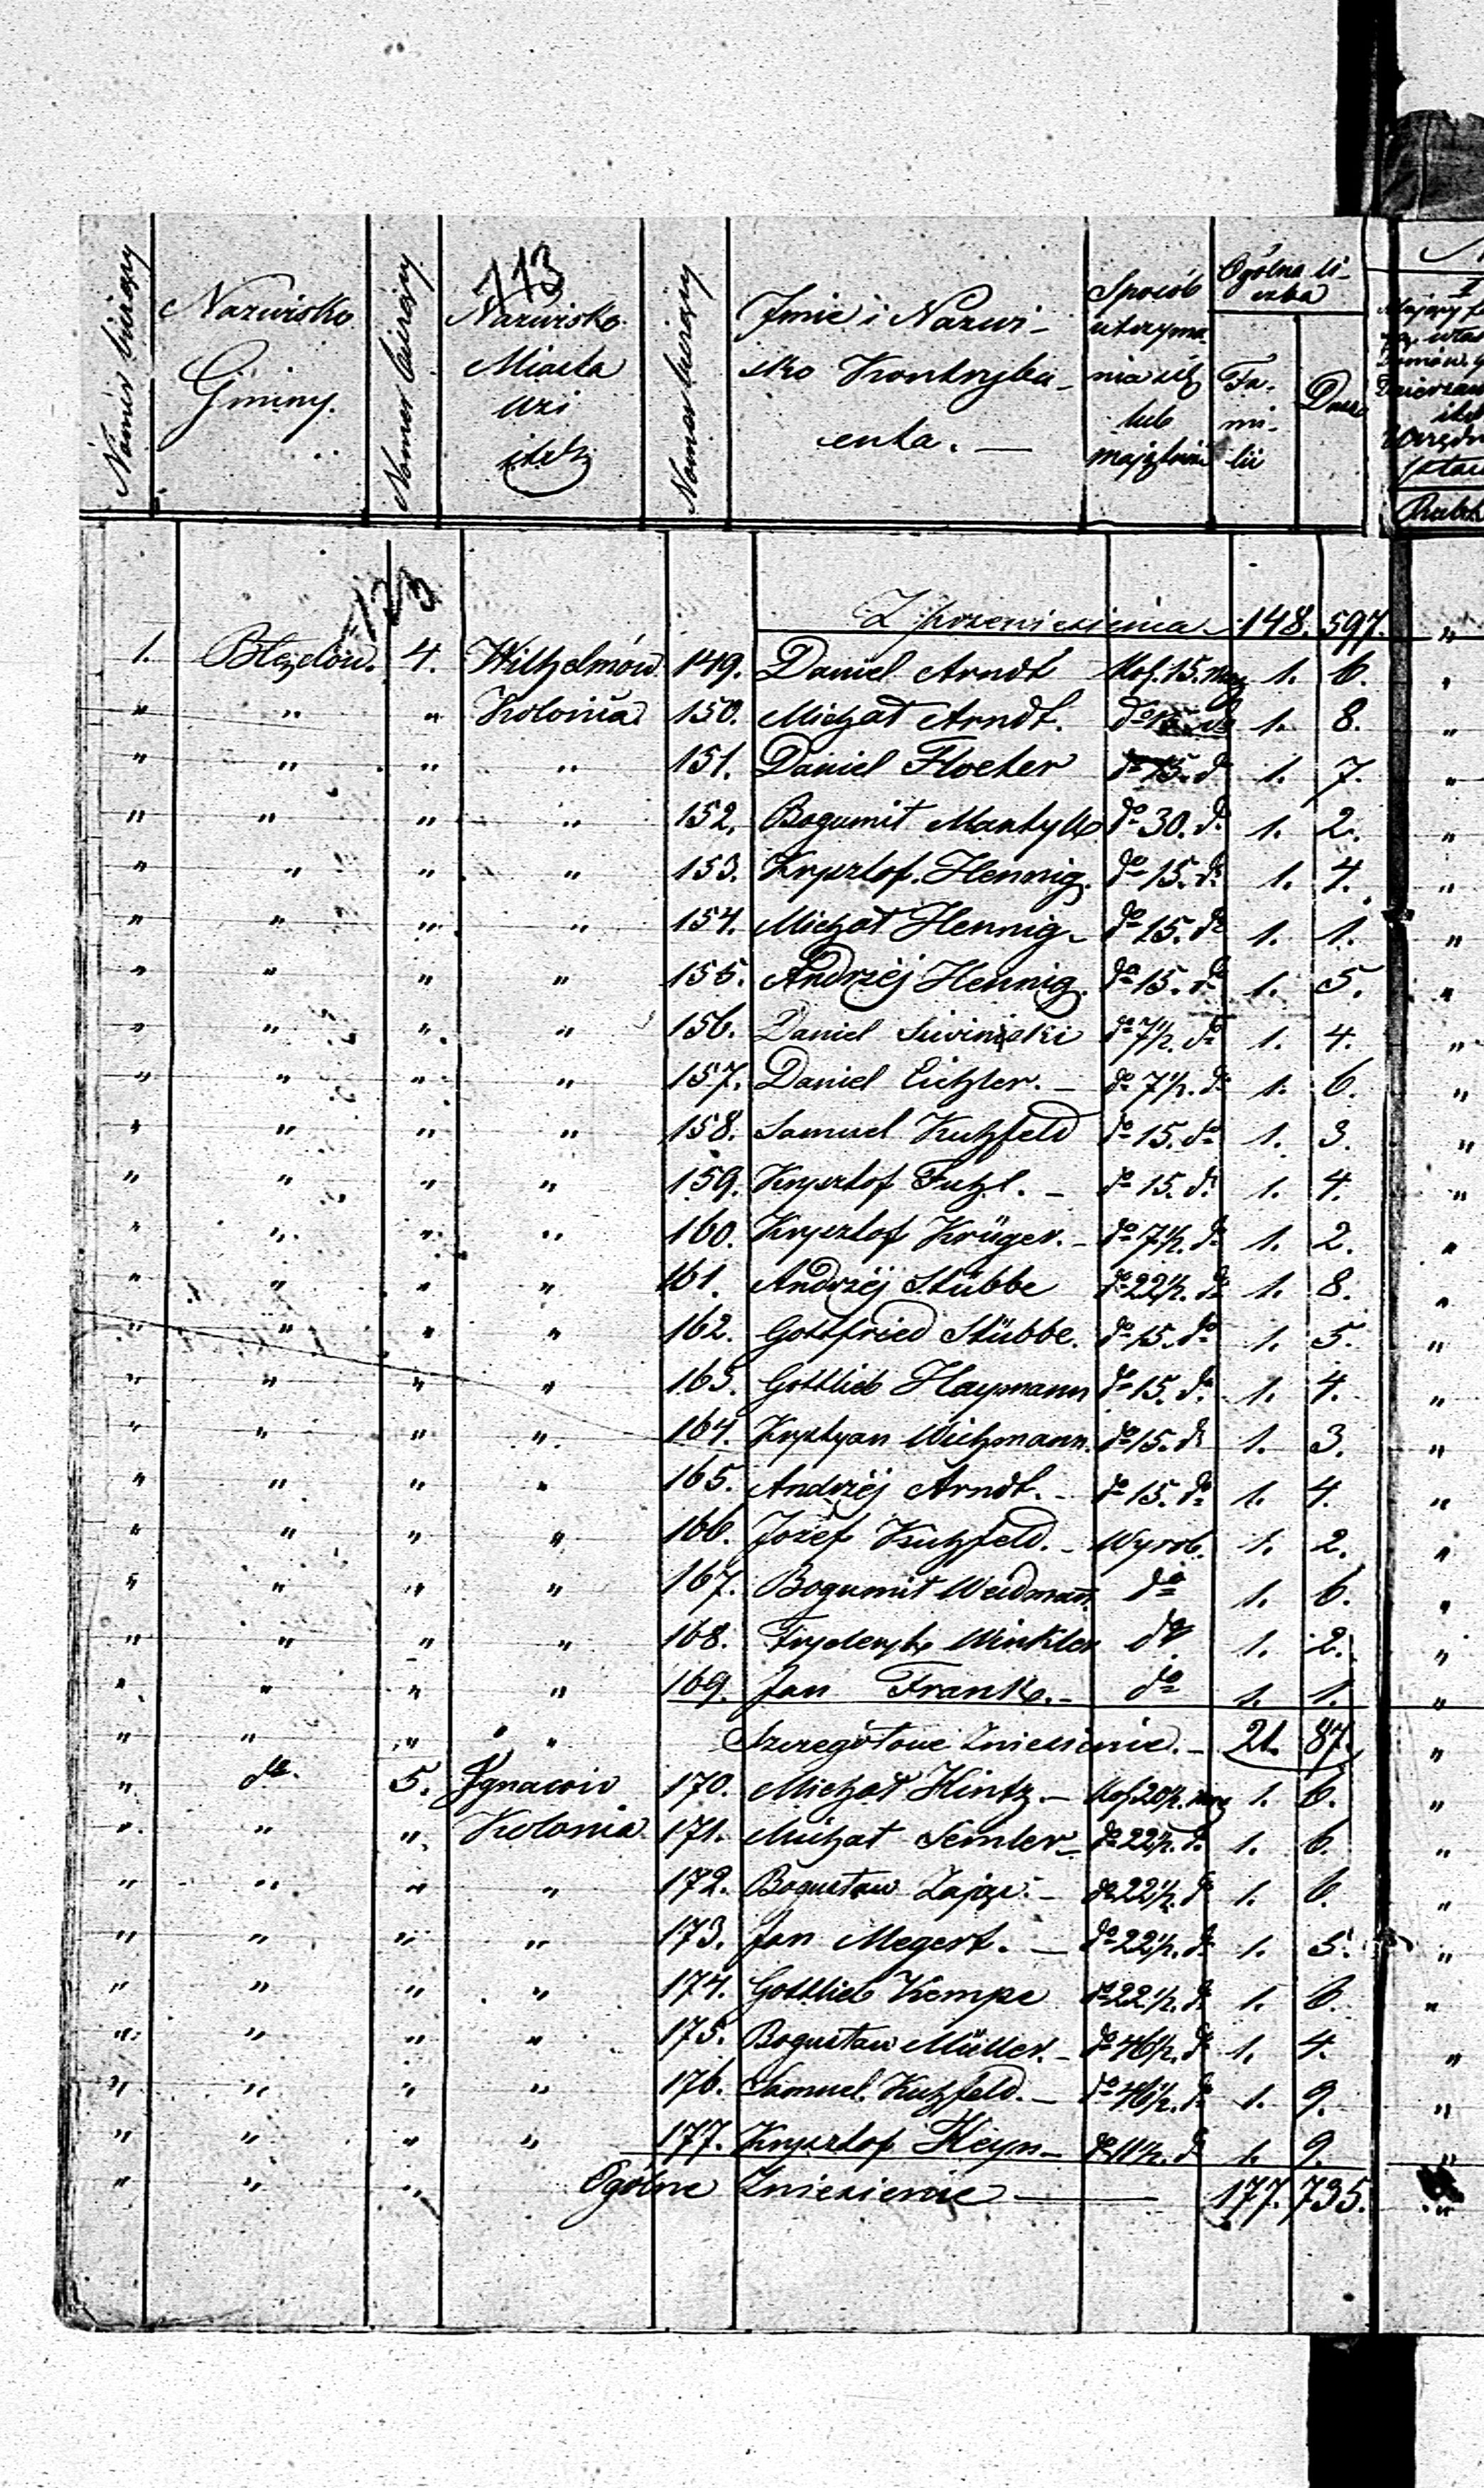 Numer bieżący | Nazwisko Gminy. | Numer bieżący | 113 Nazwisko Miasta wsi itd. | Numer bieżący | Jmie i Nazwisko Kontrybuenta. — | Sposób utrzymania się lub majątku | Ogólna liczba Familii | Dusz
123
Z przeniesienia | 148. | 597.
1. | Błędów. | 4. | Wilhelmów | 149. | Daniel Arndt | Kol. 15. mrg | 1. | 6.
" | " | " | Kolonia | 150. | Michał Arndt. | do 15. do | 1. | 8.
" | " | " | " | 151. | Daniel Floeter | do 15. do | 1. | 7.
" | " | " | " | 152. | Bogumił | do 30. do | 1. | 2.
" | " | " | " | 153. | Krysztof. Hennig. | do 15. do | 1. | 4.
" | " | " | " | 154. | Michał Hennig. | do 15. do | 1. | 1.
" | " | " | " | 155. | Andrzéj Hennig. | do 15. do | 1. | 5.
" | " | " | " | 156. | Daniel | do 7½. do | 1. | 4.
" | " | " | " | 157. | Daniel Eichler. — | do 7½. do | 1. | 6.
" | " | " | " | 158. | Samuel Kuhfeld | do 15. do | 1. | 3.
" | " | " | " | 159. | Krysztof — | do 15. do | 1. | 4.
" | " | " | " | 160. | Krysztof Krüger. — | do 7½. do | 1. | 2.
" | " | " | " | 161. | Andrzéj Stübbe | do 22½. do | 1. | 8.
" | " | " | " | 162. | Gottfried Stübbe. | do 15. do | 1. | 5.
" | " | " | " | 163. | Gottlieb Haymann | do 15. do | 1. | 4.
" | " | " | " | 164. | Krystyan Wichmann. | do 15. do | 1. | 3.
" | " | " | " | 165. | Andrzéj Arndt. — | do 15. do | 1. | 4.
" | " | " | " | 166. | Jozef Kuhfeld. — | Wyrob. | 1. | 2.
" | " | " | " | 167. | Bogumił Weidman. | do | 1. | 6.
" | " | " | " | 168. | Fryderyk Winkler | do | 1. | 2.
" | " | " | " | 169. | Jan Frank. — | do | 1. | 1.
" | " | " | " | Szczegółowe Zniesienie. — | 21. | 87.
" | do. | 5. | Ignacow | 170. | Michał Hintz. — | Kol. 20½. mrg | 1. | 6.
" | " | " | Kolonia | 171. | Michał Semler — | do 22½. do | 1. | 6.
" | " | " | " | 172. | Bogusław — | do 22½. do | 1. | 6.
" | " | " | " | 173. | Jan Megert. — | do 22½. do | 1. | 5.
" | " | " | " | 174. | Gottlieb Kempe | do 22½. do | 1. | 6.
" | " | " | " | 175. | Bogusław Müller. — | do 46½. do | 1. | 4.
" | " | " | " | 176. | Samuel Kuhfeld. — | do 46½. do | 1. | 9.
" | " | " | " | 177. | Krysztof Heyn — | do 11½. do | 1. | 9.
" | " | " | Ogólne Zniesienie — | 177. | 735.